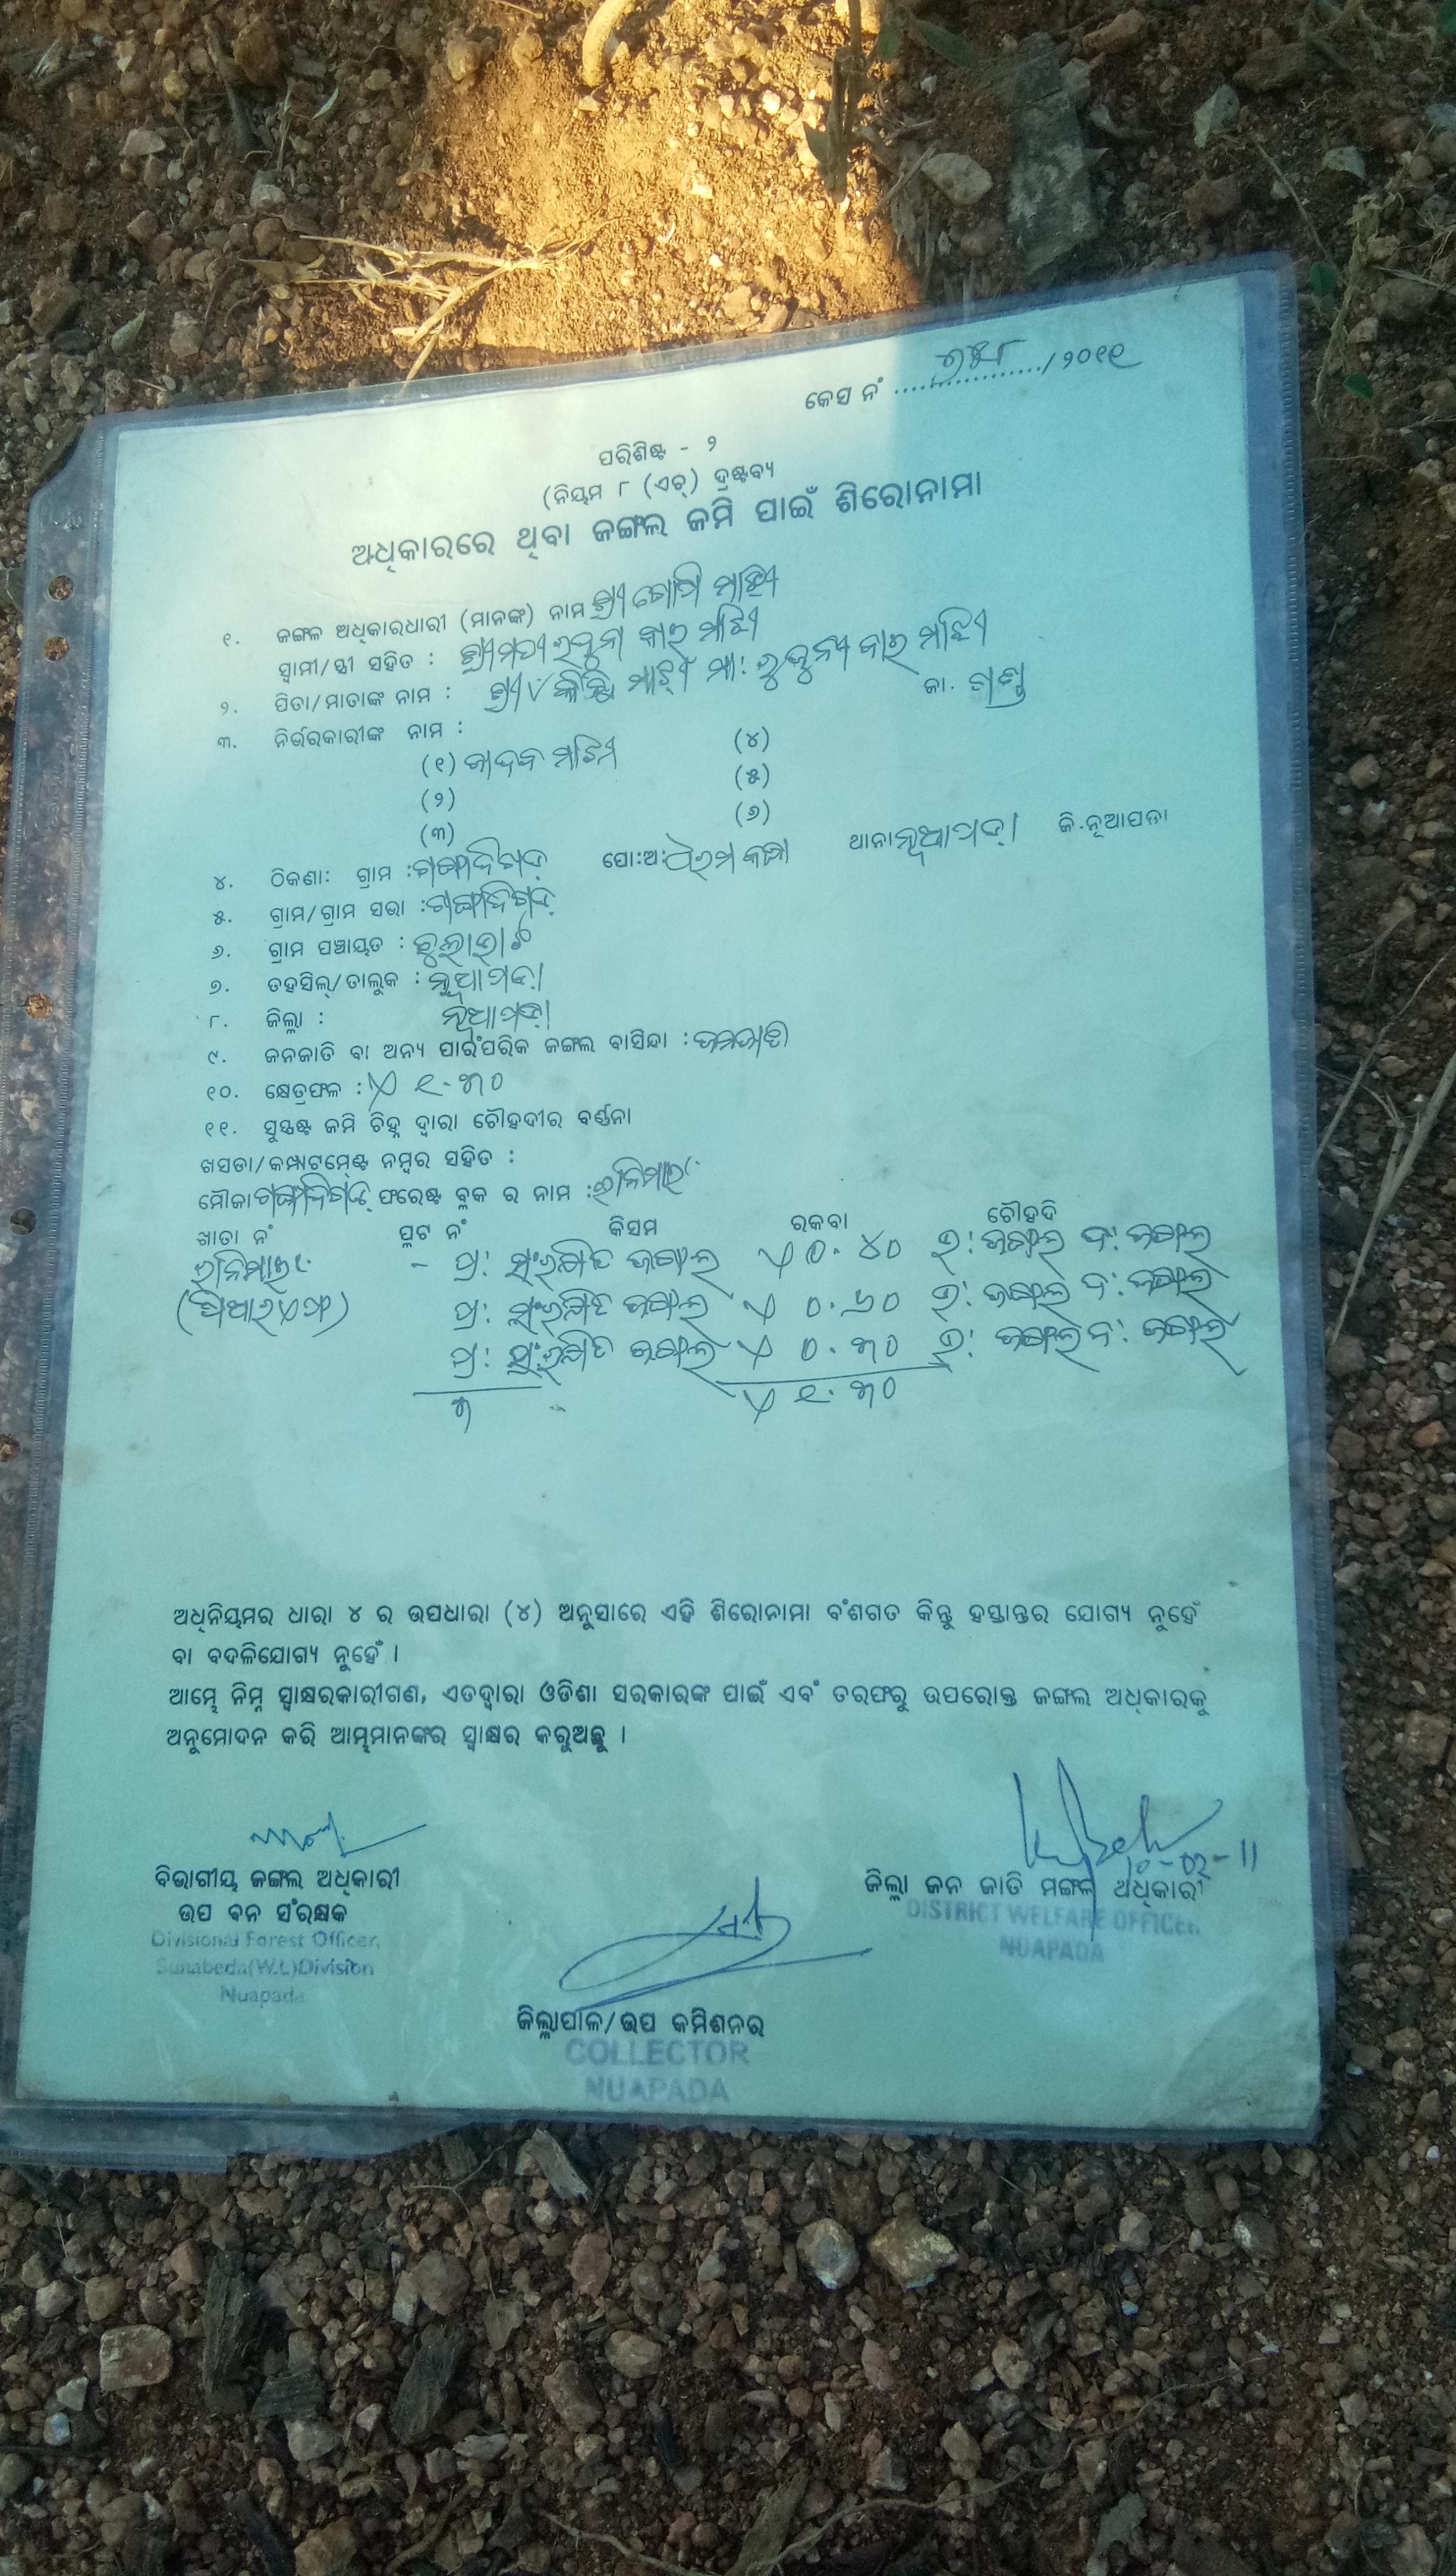 କେସ ନଂ ................./୨୦୧୧
ପରିଶିଷ୍ଟ - ୨
(ନିୟମ ୮ (ଏଚ୍) ଦ୍ରଷ୍ଟବ୍ୟ
ଅଧିକାରରେ ଥିବା ଜଙ୍ଗଲ ଜମି ପାଇଁ ଶିରୋନାମା
୧. ଜଙ୍ଗଲ ଅଧିକାରଧାରୀ (ମାନଙ୍କ) ନାମ ଶ୍ରୀ ଗୋପି ମାଝି
ସ୍ୱାମୀ/ସ୍ତ୍ରୀ ସହିତ : ଶ୍ରୀମତୀ ମାଝି
୨. ପିତା/ମାତାଙ୍କ ନାମ : ଶ୍ରୀ ମାଝି ମା: ମାଝି
ଜା. ଗଣ୍ଡ
୩. ନିର୍ଭରକାରୀଙ୍କ ନାମ :
(୧) ଜାଦବ ମାଝି (୪)
(୨) (୫)
(୩) (୬)
୪. ଠିକଣା: ଗ୍ରାମ : ପୋ:ଅ: ଥାନା ନୂଆପଡ଼ା ଜି.ନୂଆପଡା
୫. ଗ୍ରାମ/ଗ୍ରାମ ସଭା :
୬. ଗ୍ରାମ ପଞ୍ଚାୟତ :
୭. ତହସିଲ୍/ତାଲୁକ : ନୂଆପଡ଼ା
୮. ଜିଲ୍ଲା : ନୂଆପଡ଼ା
୯. ଜନଜାତି ବା ଅନ୍ୟ ପାରଂପରିକ ଜଙ୍ଗଲ ବାସିନ୍ଦା : ଜନଜାତି
୧୦. କ୍ଷେତ୍ରଫଳ : ୧.୩୦
୧୧. ସୁସ୍ପଷ୍ଟ ଜମି ଚିହ୍ନ ଦ୍ୱାରା ଚୌହଦୀର ବର୍ଣ୍ଣନା
ଖସଡା/କମ୍ପାଟମେଣ୍ଟ ନମ୍ବର ସହିତ :
ମୌଜା ଫରେଷ୍ଟ ବ୍ଲକ ର ନାମ :
ଖାତା ନଂ ପ୍ଲଟ ନଂ କିସମ ରକବା ଚୌହଦି
- ପ୍ର: ସଂରକ୍ଷିତ ଜଙ୍ଗଲ ୦.୪୦ ଉ: ଜଙ୍ଗଲ ଦ: ଜଙ୍ଗଲ
ପ୍ର: ସଂରକ୍ଷିତ ଜଙ୍ଗଲ ୦.୬୦ ଉ: ଜଙ୍ଗଲ ଦ: ଜଙ୍ଗଲ
ପ୍ର: ସଂରକ୍ଷିତ ଜଙ୍ଗଲ ୦.୩୦ ଉ: ଜଙ୍ଗଲ ଦ: ଜଙ୍ଗଲ
୩ ୧.୩୦
ଅଧିନିୟମର ଧାରା ୪ ର ଉପଧାରା (୪) ଅନୁସାରେ ଏହି ଶିରୋନାମା ବଂଶଗତ କିନ୍ତୁ ହସ୍ତାନ୍ତର ଯୋଗ୍ୟ ନୁହେଁ
ବା ବଦଳିଯୋଗ୍ୟ ନୁହେଁ ।
ଆମ୍ଭେ ନିମ୍ନ ସ୍ୱାକ୍ଷରକାରୀଗଣ, ଏତଦ୍ୱାରା ଓଡିଶା ସରକାରଙ୍କ ପାଇଁ ଏବଂ ତରଫରୁ ଉପରୋକ୍ତ ଜଙ୍ଗଲ ଅଧିକାରକୁ
ଅନୁମୋଦନ କରି ଆମ୍ଭମାନଙ୍କର ସ୍ୱାକ୍ଷର କରୁଅଛୁ ।
ବିଭାଗୀୟ ଜଙ୍ଗଲ ଅଧିକାରୀ
ଉପ ବନ ସଂରକ୍ଷକ
Divisional Forest Officer,
Sunabeda(W.L)Division
Nuapada
ଜିଲ୍ଲା ଜନ ଜାତି ମଙ୍ଗଳ ଅଧିକାରୀ
DISTRICT WELFARE OFFICER
NUAPADA
ଜିଲ୍ଲାପାଳ/ଉପ କମିଶନର
COLLECTOR
NUAPADA